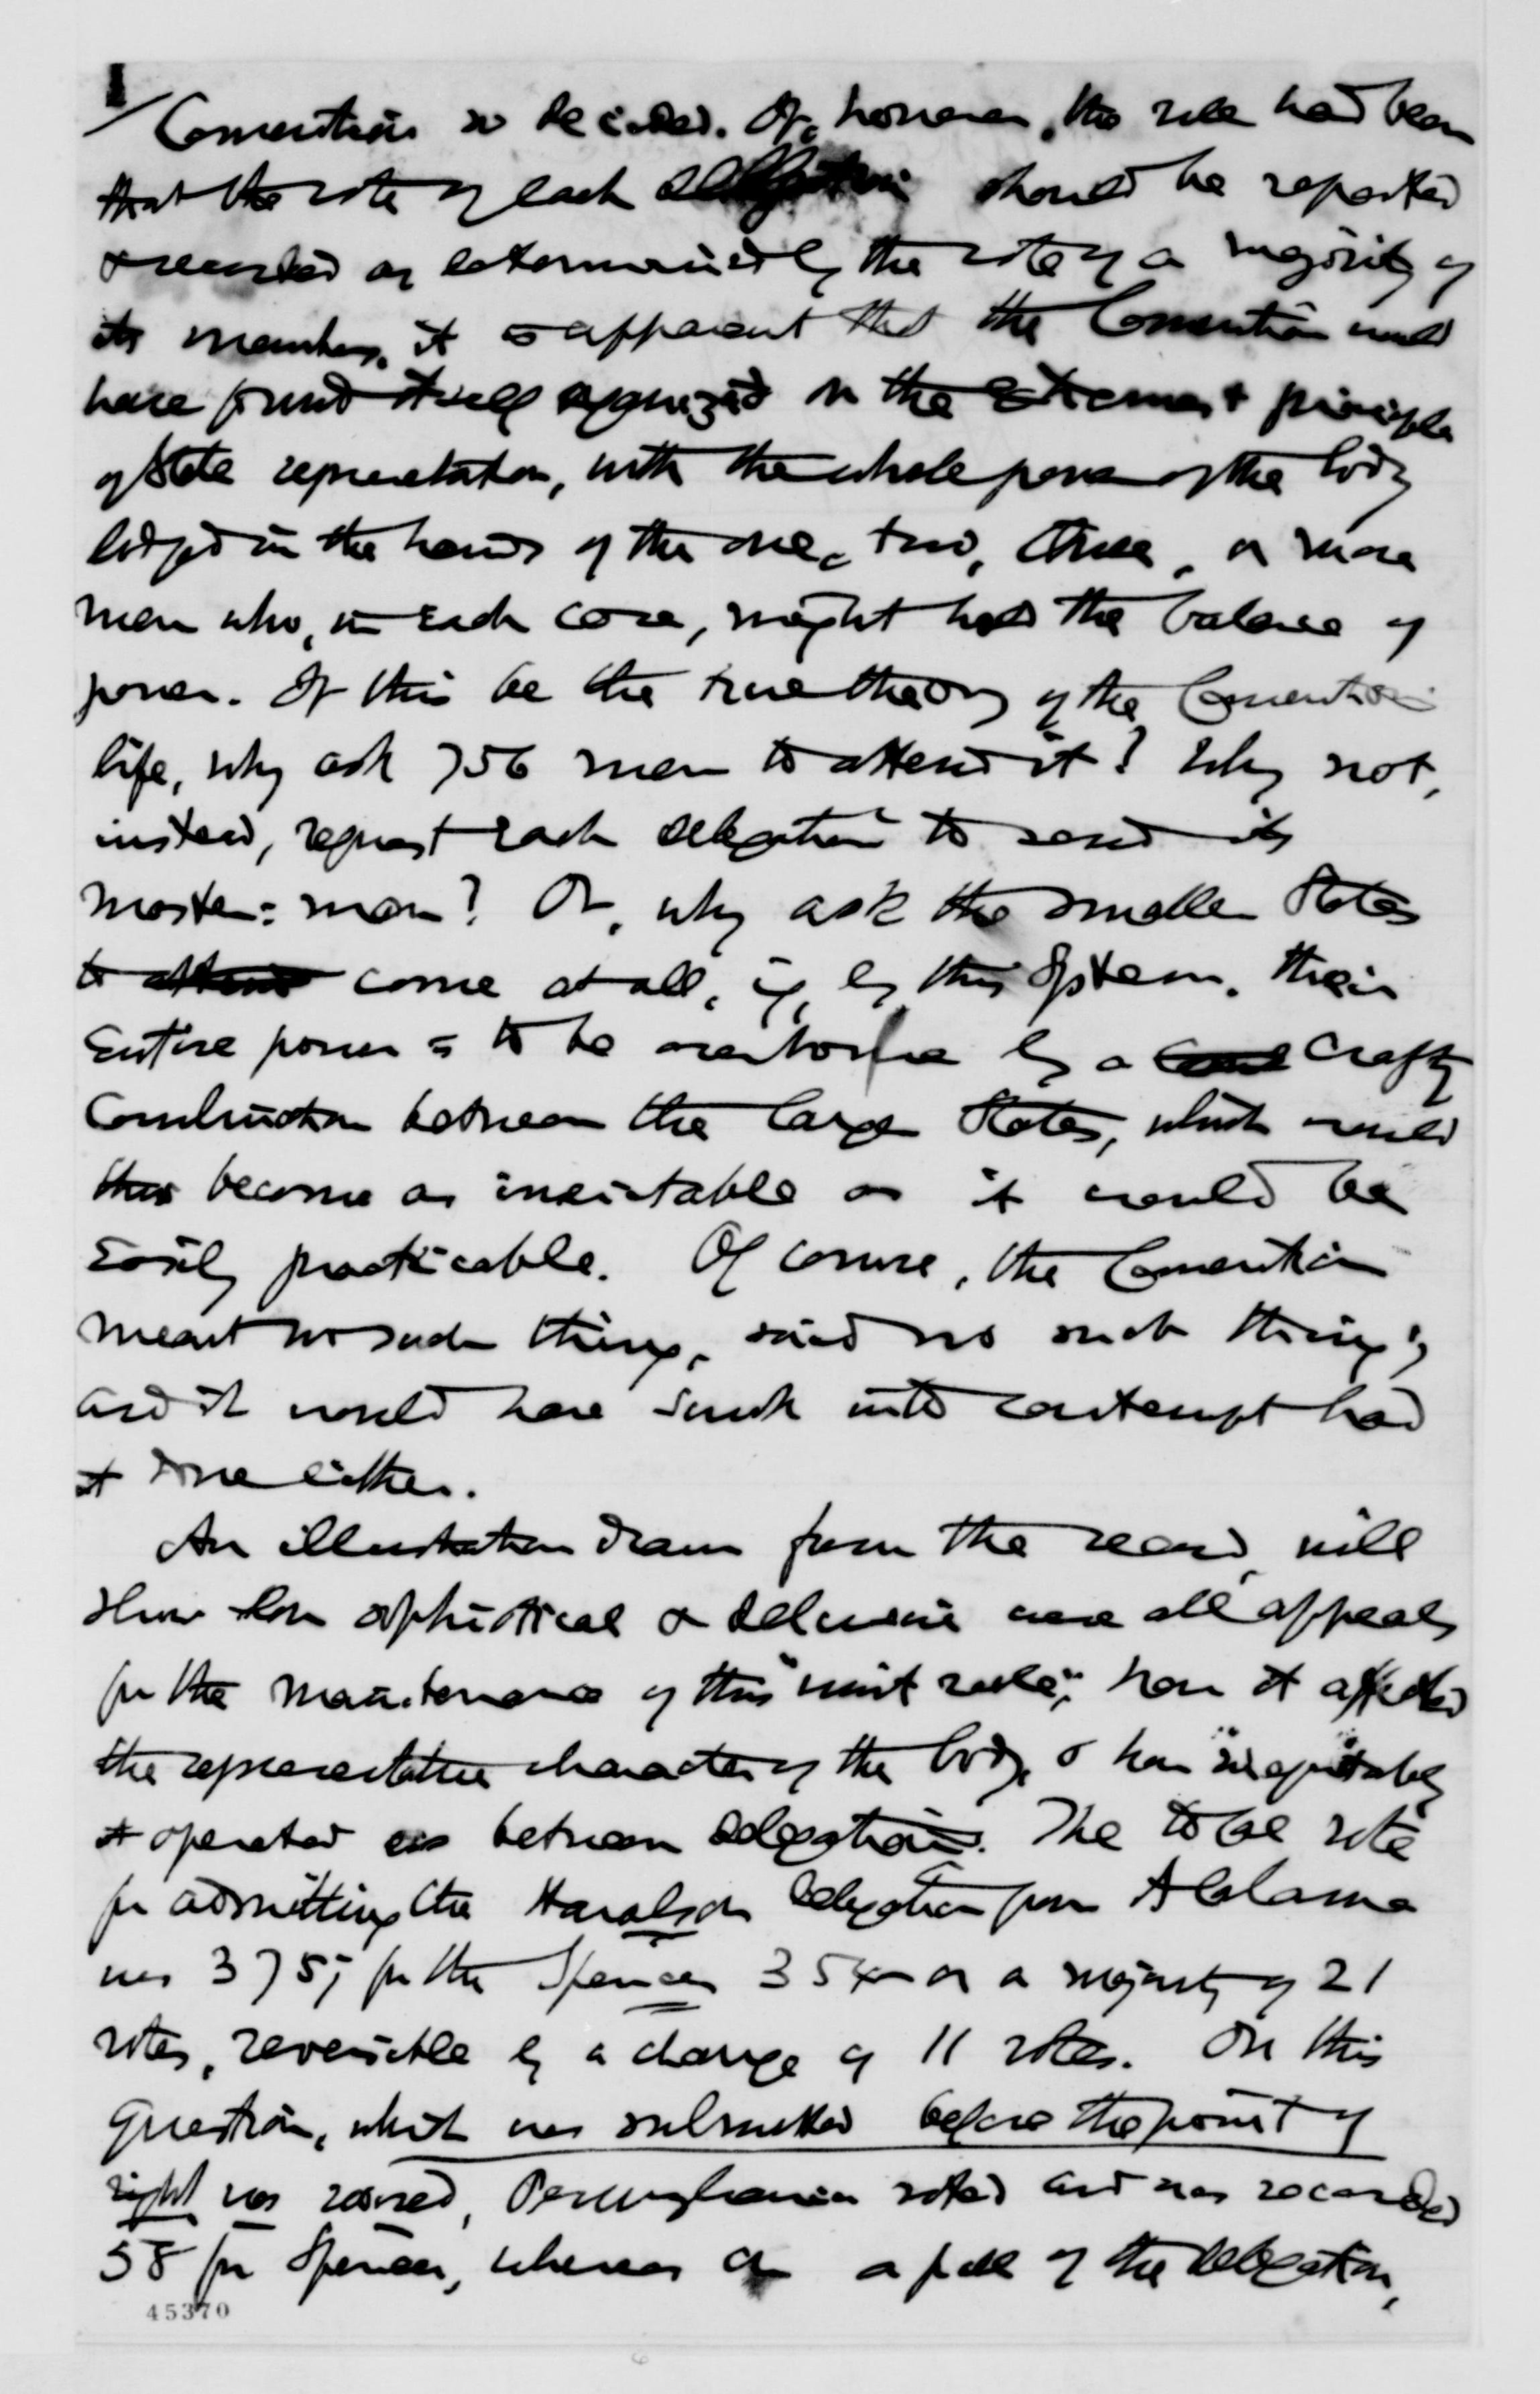 Convention so decided. If, however, the rule had been
that the vote of each delegation should be reported
& recorded as determined by the vote of a majority of
its members, it is apparent that the Convention would
have found itself organized on the extremest principle
of State representation, with the whole power of the body
lodged in the hands of the one, two, three, or more
men who, in each case, might hold the balance of
power. If this be the true theory of the Convention
life, why ask 756 men to attend it? Why not,
instead, request each delegation to send its
master-man? Or, why ask the smaller States
to attend come at all, if, by this system, their
entire power is to be overborne by a crafty
Combination between the large States, which would
thus become as inevitable as it would be
easily practicable. Of course, the Convention
meant no such thing, said no such thing;
and it would have sunk into contempt had
it done either.
An illustration drawn from the record, will
show how sophistical & delusive were all appeals
for the maintenance of this "unit rule"; how it affected
the representative character of the body, & how inequitably
it operated as between delegations. The total vote
for admitting the Haralson delegation from Alabama
was 375; for the Spencer 354 or a majority of 21
votes, reversible by a change of 11 votes. On this
question, which was submitted before the point of
right was raised, Pennsylvania voted and was recorded
58 for Spencer, whereas on a poll of the delegation,
45370